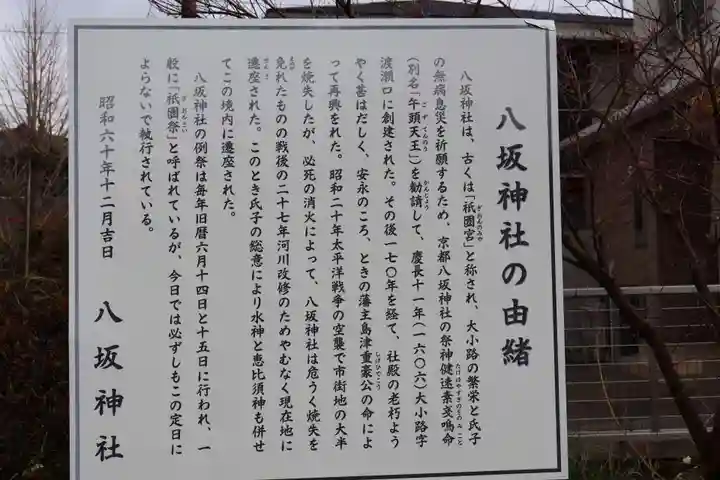 八坂神社の由緒
八坂神社は、古くは「祇園宮」と称され、大小路の繁栄と氏子
の無病息災を祈願するため、京都八坂神社の祭神健速素戔鳴命
(別名「午頭天王」)を勧請して、慶長十一年(一六〇六)大小路字
渡瀬口に創建された。その後一七〇年を経て、社殿の老朽よう
やく甚はだしく、安永のころ、ときの藩主島津重豪公の命によ
って再興をれた。昭和二十年太平洋戦争の空襲で市街地の大半
を焼失したが、必死の消火によって、八坂神社は危うく焼失を
免れたものの戦後の二十七年河川改修のためやむなく現在地に
遷座された。このとき氏子の総意により水神と恵比須神も併せ
てこの境内に遷座された。
八坂神社の例祭は毎年旧暦六月十四日と十五日に行われ、一
般に「祇園祭」と呼ばれているが、今日では必ずしもこの定日に
よらないで執行されている。
昭和六十年十二月吉日
八坂神社